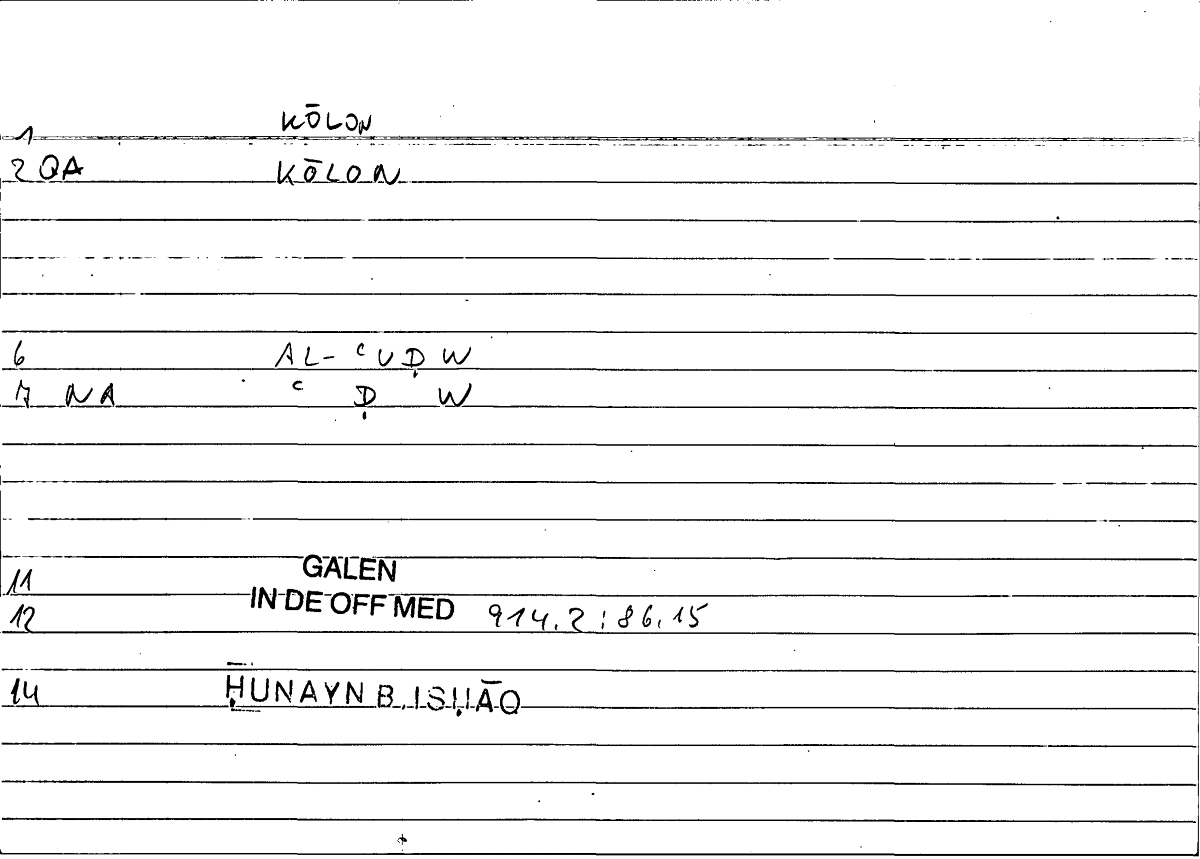 1 KŌLON
2 QA KŌLON
6 AL- ʿUḌW
7 NA ʿ Ḍ W
11 GALEN
12 IN DE OFF MED 914.2 : 86.15
14 ḤUNAYN B. ISḤĀQ